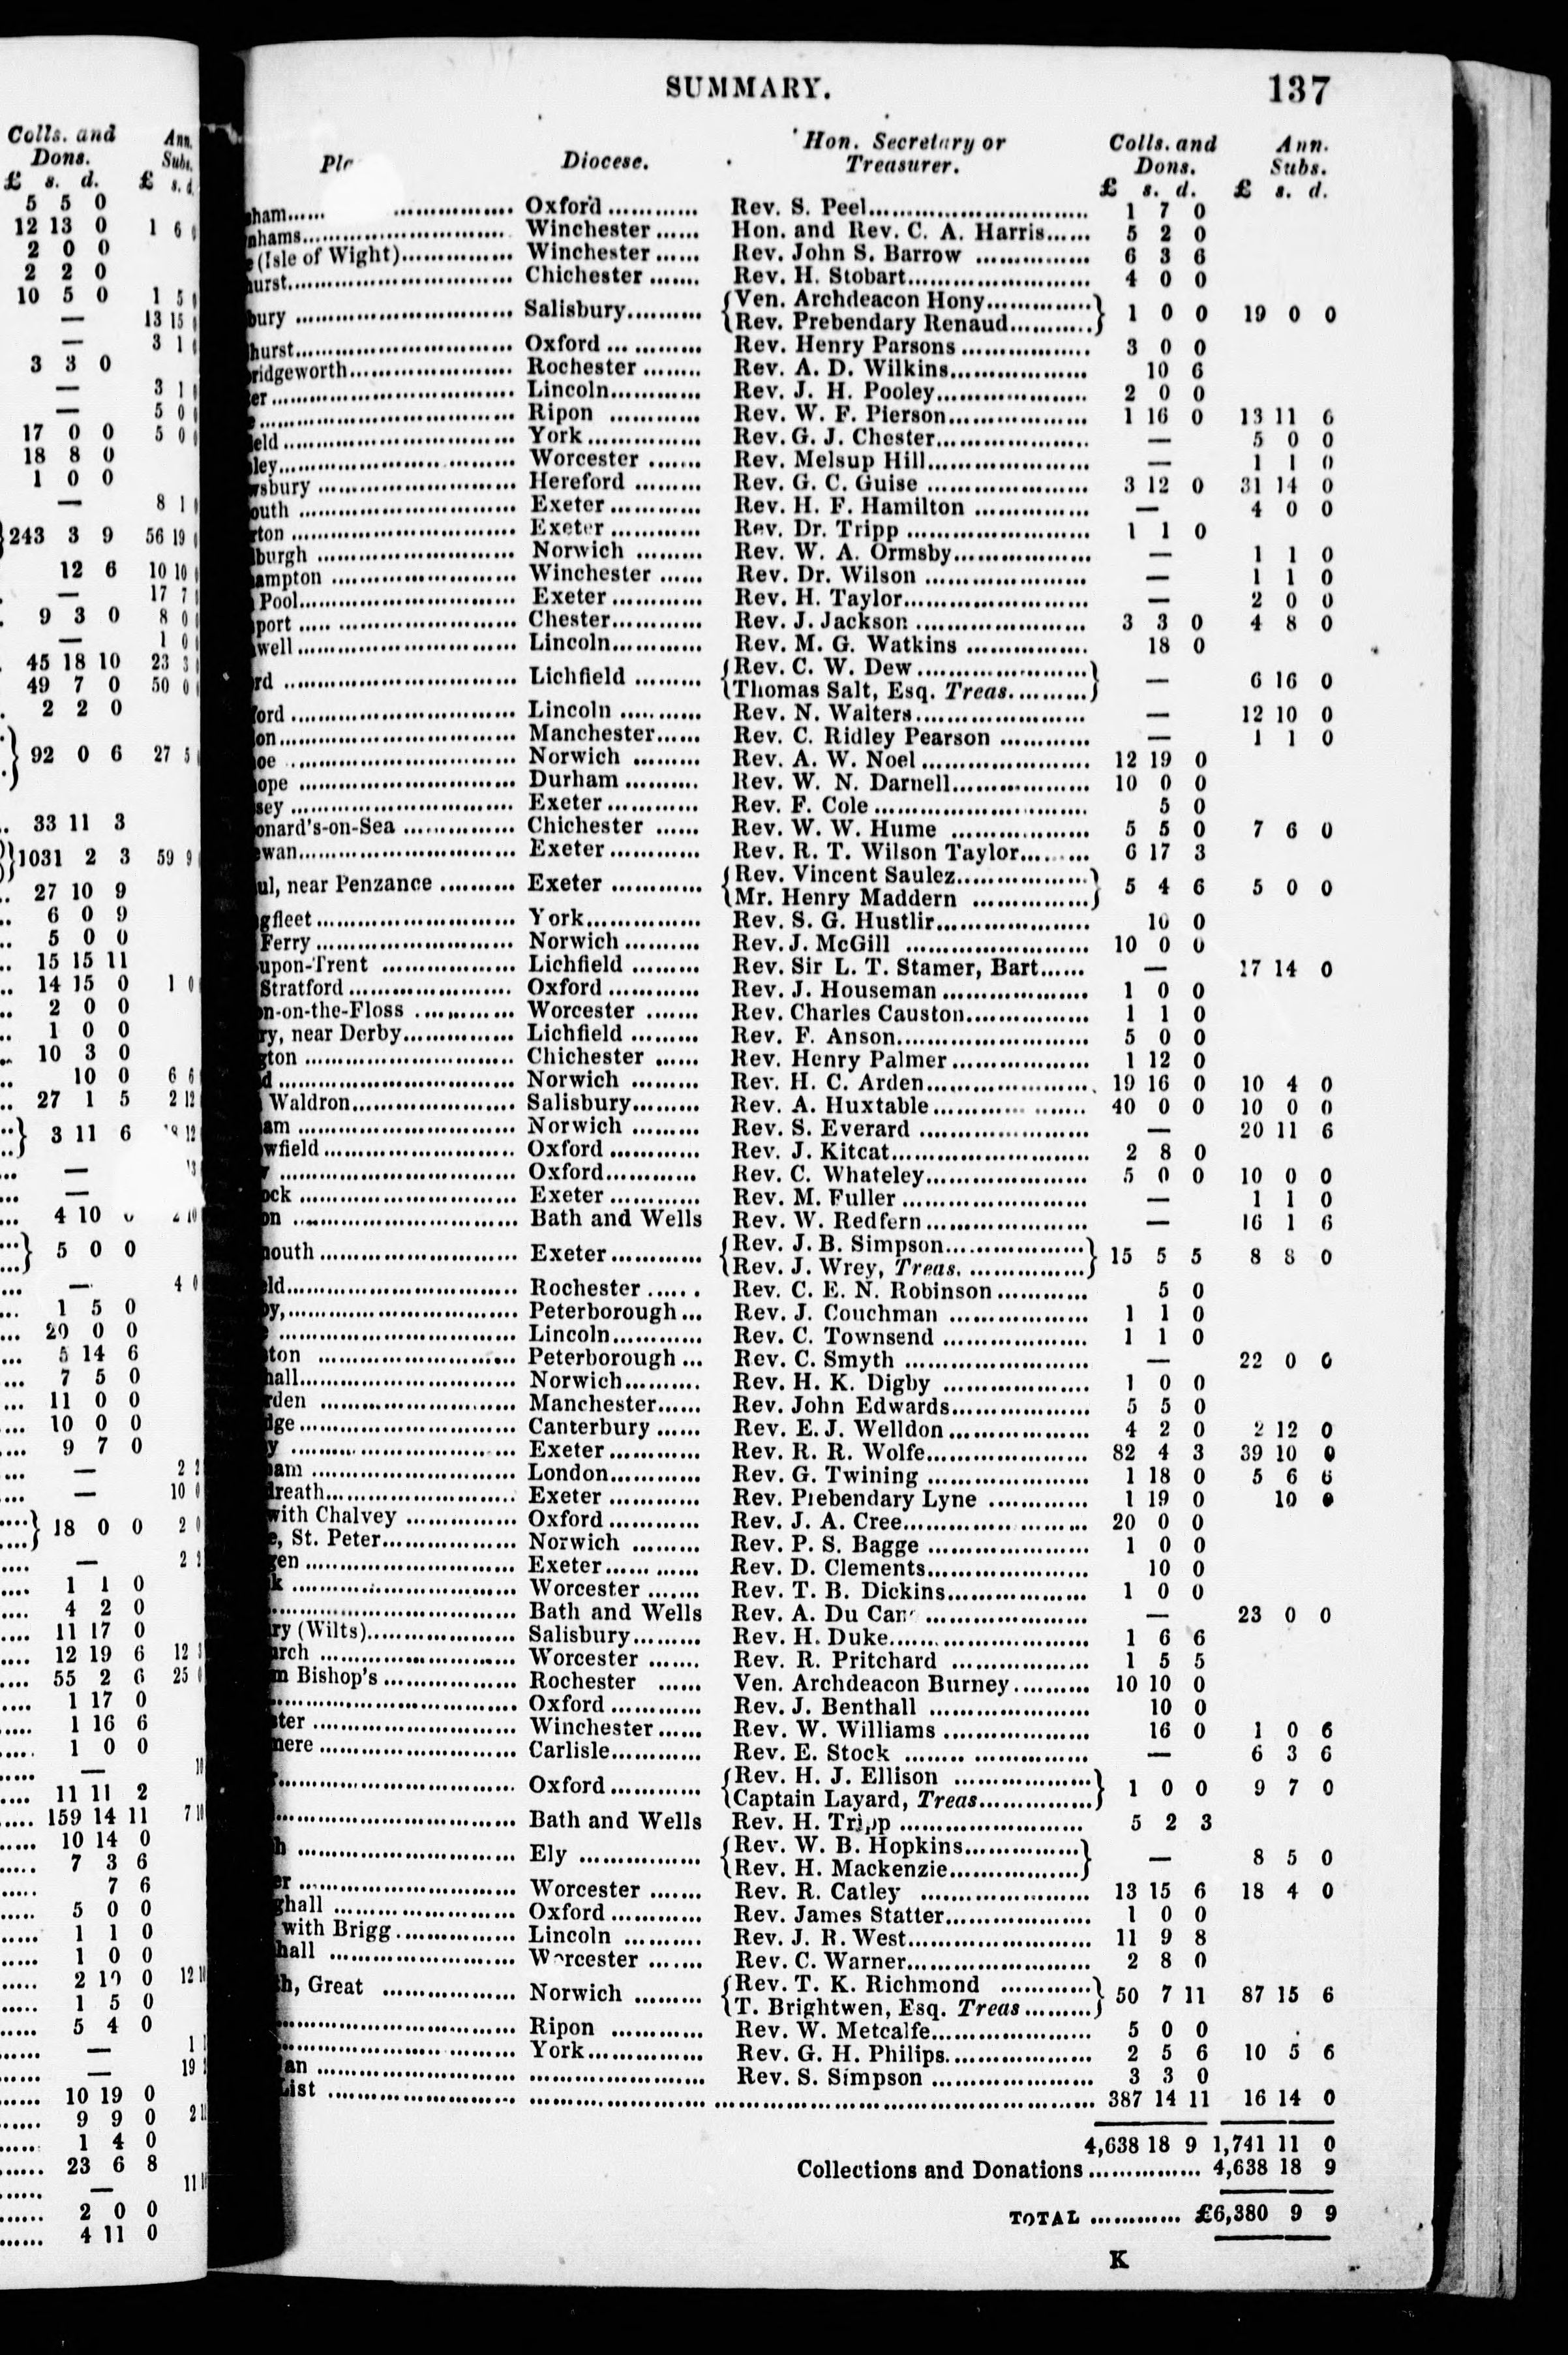 Colls. and Ann.
Dons. Subs.
£ s. d. £ s. d.
5 5 0
12 13 0 1 6
2 0 0
2 2 0
10 5 0 1 5
— 13 15
— 3 1
3 3 0
— 3 1
— 5 0
17 0 0 5 0
18 8 0
1 0 0
— 8 1
243 3 9 56 19
12 6 10 10
— 17 7
9 3 0 8 0
— 1 0
45 18 10 23 3
49 7 0 50 0
2 2 0
92 0 6 27 5
33 11 3
1031 2 3 59 9
27 10 9
6 0 9
5 0 0
15 15 11
14 15 0 1 0
2 0 0
1 0 0
10 3 0
10 0 6 6
27 1 5 2 12
3 11 6 12
—
—
4 10
5 0 0
— 4 0
1 5 0
20 0 0
5 14 6
7 5 0
11 0 0
10 0 0
9 7 0
— 2 2
— 10 0
18 0 0 2 0
— 2 2
1 1 0
4 2 0
11 17 0
12 19 6 12 3
55 2 6 25 0
1 17 0
1 16 6
1 0 0
—
11 11 2
159 14 11 7 10
10 14 0
7 3 6
7 6
5 0 0
1 1 0
1 0 0
2 10 0 12 10
1 5 0
5 4 0
— 1
— 19
10 19 0
9 9 0 2
1 4 0
23 6 8
— 11
2 0 0
4 11 0
SUMMARY. 137
Hon. Secretary or Colls. and Ann.
Diocese. Treasurer. Dons. Subs.
£ s. d. £ s. d.
ham...... Oxford ............ Rev. S. Peel............ 1 7 0
nhams............ Winchester ...... Hon. and Rev. C. A. Harris...... 5 2 0
(Isle of Wight)............ Winchester ...... Rev. John S. Barrow ............ 6 3 6
urst............ Chichester ....... Rev. H. Stobart............ 4 0 0
bury ............ Salisbury.......... {Ven. Archdeacon Hony............}
{Rev. Prebendary Renaud...........} 1 0 0 19 0 0
hurst............ Oxford ............ Rev. Henry Parsons ............ 3 0 0
ridgeworth............ Rochester ........ Rev. A. D. Wilkins............ 10 6
er ............ Lincoln............ Rev. J. H. Pooley............ 2 0 0
............ Ripon ............ Rev. W. F. Pierson............ 1 16 0 13 11 6
eld ............ York ............ Rev. G. J. Chester............ — 5 0 0
ley............ Worcester ....... Rev. Melsup Hill............ — 1 1 0
wsbury ............ Hereford ......... Rev. G. C. Guise ............ 3 12 0 31 14 0
outh ............ Exeter ............ Rev. H. F. Hamilton ............ — 4 0 0
rton ............ Exeter ............ Rev. Dr. Tripp ............ 1 1 0
burgh ............ Norwich ......... Rev. W. A. Ormsby............ — 1 1 0
ampton ............ Winchester ...... Rev. Dr. Wilson ............ — 1 1 0
Pool............ Exeter ............ Rev. H. Taylor............ — 2 0 0
port ............ Chester............ Rev. J. Jackson ............ 3 3 0 4 8 0
well ............ Lincoln............ Rev. M. G. Watkins ............ 18 0
rd ............ Lichfield ......... {Rev. C. W. Dew ............}
{Thomas Salt, Esq. Treas..........} — 6 16 0
ord ............ Lincoln ............ Rev. N. Walters............ — 12 10 0
on............ Manchester...... Rev. C. Ridley Pearson ............ — 1 1 0
oe ............ Norwich ......... Rev. A. W. Noel ............ 12 19 0
ope ............ Durham .......... Rev. W. N. Darnell............ 10 0 0
sey ............ Exeter ............ Rev. F. Cole ............ 5 0
onard's-on-Sea ............ Chichester ...... Rev. W. W. Hume ............ 5 5 0 7 6 0
wan............ Exeter ............ Rev. R. T. Wilson Taylor......... 6 17 3
ul, near Penzance .......... Exeter ............ {Rev. Vincent Saulez............}
{Mr. Henry Maddern ............} 5 4 6 5 0 0
gfleet ............ York............ Rev. S. G. Hustlir............ 10 0
Ferry ............ Norwich .......... Rev. J. McGill ............ 10 0 0
upon-Trent ............ Lichfield ......... Rev. Sir L. T. Stamer, Bart...... — 17 14 0
Stratford ............ Oxford ............ Rev. J. Houseman ............ 1 0 0
n-on-the-Floss ............ Worcester ....... Rev. Charles Causton............ 1 1 0
ry, near Derby............ Lichfield ......... Rev. F. Anson............ 5 0 0
gton ............ Chichester ...... Rev. Henry Palmer ............ 1 12 0
d ............ Norwich ......... Rev. H. C. Arden............ 19 16 0 10 4 0
Waldron............ Salisbury......... Rev. A. Huxtable ............ 40 0 0 10 0 0
am ............ Norwich ......... Rev. S. Everard ............ — 20 11 6
wfield ............ Oxford ............ Rev. J. Kitcat............ 2 8 0
............ Oxford............ Rev. C. Whateley............ 5 0 0 10 0 0
ock ............ Exeter ............ Rev. M. Fuller ............ — 1 1 0
on ............ Bath and Wells Rev. W. Redfern ............ — 16 1 6
outh ............ Exeter ............ {Rev. J. B. Simpson............}
{Rev. J. Wrey, Treas. ............} 15 5 5 8 8 0
ld............ Rochester ...... Rev. C. E. N. Robinson ............ 5 0
y,............ Peterborough ... Rev. J. Couchman ............ 1 1 0
............ Lincoln............ Rev. C. Townsend ............ 1 1 0
ton ............ Peterborough ... Rev. C. Smyth ............ — 22 0 0
hall............ Norwich.......... Rev. H. K. Digby ............ 1 0 0
rden ............ Manchester...... Rev. John Edwards............ 5 5 0
dge ............ Canterbury ...... Rev. E. J. Welldon ............ 4 2 0 2 12 0
y ............ Exeter ............ Rev. R. R. Wolfe............ 82 4 3 39 10 0
am ............ London............ Rev. G. Twining ............ 1 18 0 5 6 6
dreath............ Exeter ............ Rev. Prebendary Lyne ............ 1 19 0 10 0
with Chalvey ............ Oxford ............ Rev. J. A. Cree............ 20 0 0
e, St. Peter............ Norwich ......... Rev. P. S. Bagge ............ 1 0 0
gen ............ Exeter............ Rev. D. Clements............ 10 0
k ............ Worcester ....... Rev. T. B. Dickins............ 1 0 0
............ Bath and Wells Rev. A. Du Can ............ — 23 0 0
ry (Wilts)............ Salisbury......... Rev. H. Duke............ 1 6 6
urch ............ Worcester ....... Rev. R. Pritchard ............ 1 5 5
m Bishop's ............ Rochester ...... Ven. Archdeacon Burney.......... 10 10 0
............ Oxford ............ Rev. J. Benthall ............ 10 0
ster ............ Winchester ...... Rev. W. Williams ............ 16 0 1 0 6
mere ............ Carlisle............ Rev. E. Stock ............ — 6 3 6
............ Oxford ............ {Rev. H. J. Ellison ............}
{Captain Layard, Treas............} 1 0 0 9 7 0
............ Bath and Wells Rev. H. Tripp ............ 5 2 3
h ............ Ely ............ {Rev. W. B. Hopkins............}
{Rev. H. Mackenzie............} — 8 5 0
er ............ Worcester ....... Rev. R. Catley ............ 13 15 6 18 4 0
ghall ............ Oxford ............ Rev. James Statter............ 1 0 0
with Brigg............ Lincoln .......... Rev. J. R. West............ 11 9 8
hall ............ Worcester ....... Rev. C. Warner............ 2 8 0
h, Great ............ Norwich ......... {Rev. T. K. Richmond ............}
{T. Brightwen, Esq. Treas .........} 50 7 11 87 15 6
............ Ripon ............ Rev. W. Metcalfe............ 5 0 0
............ York............ Rev. G. H. Philips............ 2 5 6 10 5 6
an ............ ............ Rev. S. Simpson ............ 3 3 0
List ............ ............ ............ 387 14 11 16 14 0
4,638 18 9 1,741 11 0
Collections and Donations ............ 4,638 18 9
TOTAL ............ £6,380 9 9
K